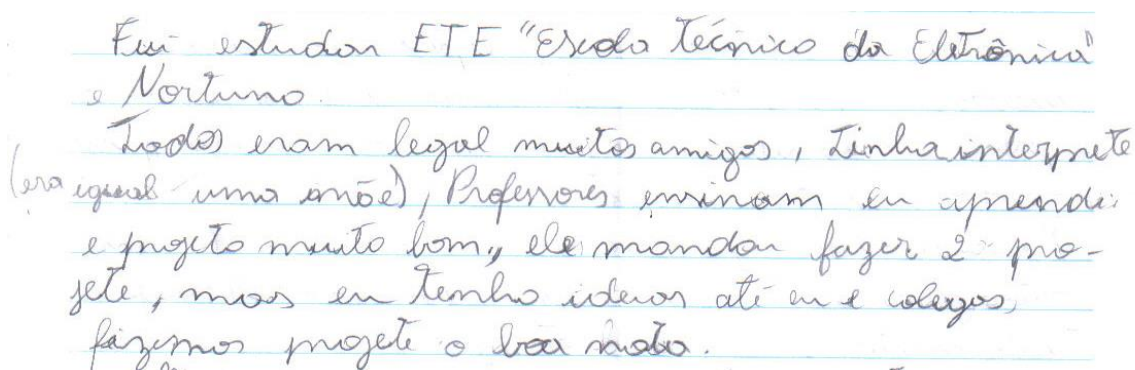 Fui estudar ETE "Escola Técnico da Eletrônica"
e Norturno.
Todos eram legal muitos amigos, Tinha interprete
(era igual uma mãe), Professores ensinam eu aprendi
e projeto muito bom,, ele mandar fazer 2 pro-
jete, mas eu tenho ideias até eu e colegas,
fazemos projete o boa nota.